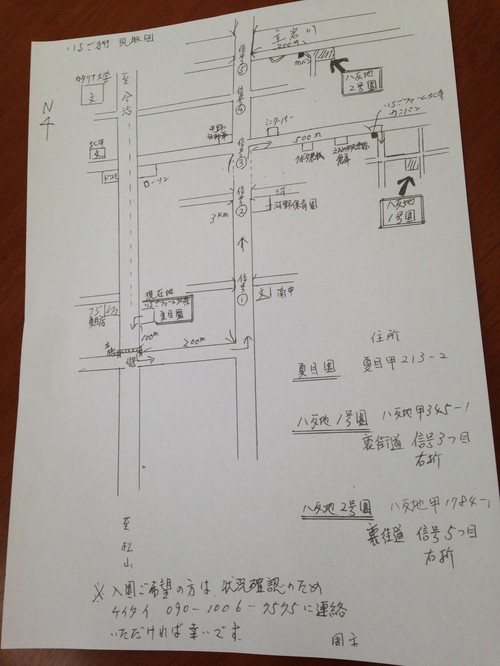 いちご村 見取図
N
至今治
カタリナ大学
文
信号⑤
信号④
信号③
信号②
信号①
立岩川
200m
八反地
2号園
いちごファーム北条
カンバン
500m
八反地
1号園
ローソン
3km
河野保育園
文 南中
現在地
夏目園
100m
200m
至松山
住所
夏目園 夏目甲213-2
八反地1号園 八反地甲345-1
裏街道 信号3つ目
右折
八反地2号園 八反地甲1784-1
裏街道 信号5つ目
右折
※入園ご希望の方は、状況確認のため
ケイタイ 090-1006-7575に連絡
いただければ幸いです。
園主